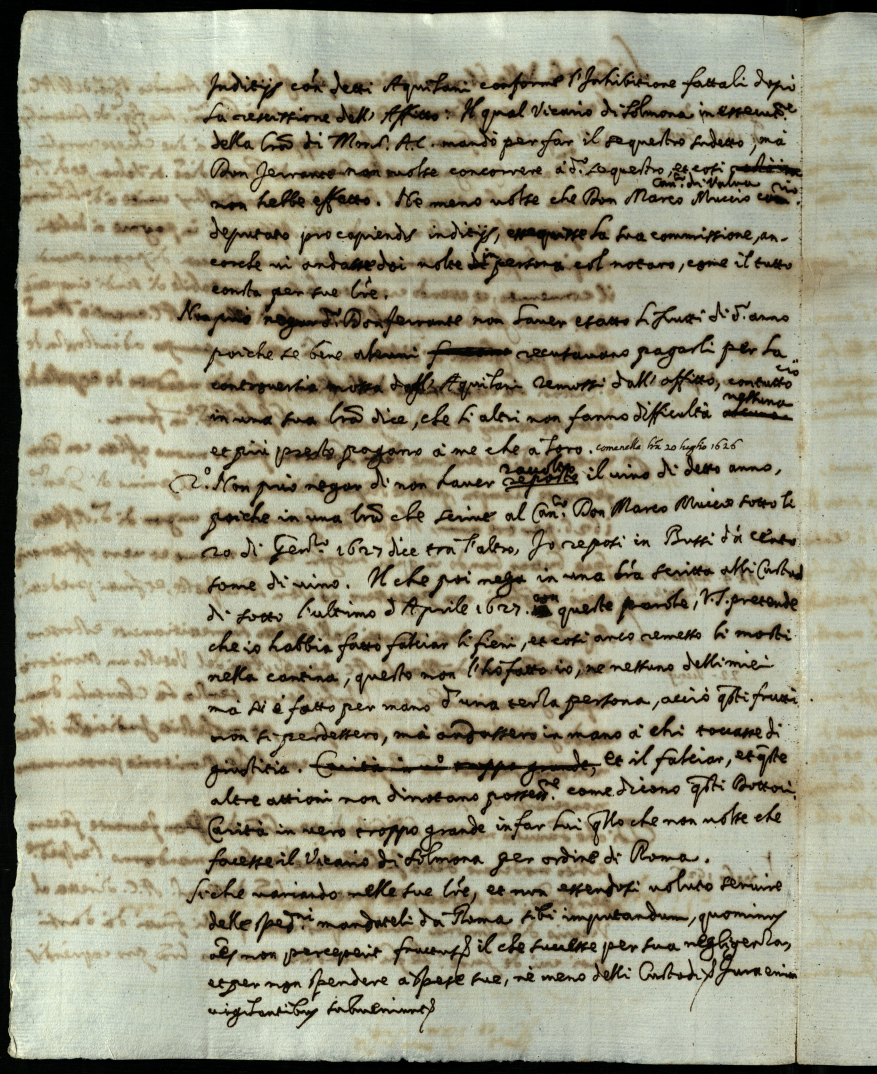 Inditijs con detti Aquilani conforme l'Inhibitione fattali dopò
la rescissione dell'Affitto: Il qual Vicario di Solmona in essecut.ne
della lrã di Mons.r A.C. mandò per far il sequestro sudetto, mà
Don Ferrante non volse concorrere à d.o sequestro, et così
non hebbe effetto. Ne meno volse che Don Marco Muccio Can.co di Valva
deputato pro capiendis inditijs, essequisse la sua commissione, an-
corche vi andasse doi volte di persona col notaro, come il tutto
consta per sue lrẽ.
Non può negar d.o Don Ferrante non haver esatto li frutti di d.o anno
poiche se bene alcuni recusavano pagarli per la
controversia mossa dagl'Aquilani remossi dall'affitto, con tutto ciò
in una sua lrã dice, che li altri non fanno difficultà nessuna
et più presto pagano à me che a loro. come nella lrã 20 luglio 1626
2.o Non può negar di non haver raccolto il vino di detto anno,
poiche in una lrã che scrive al Can.co Don Marco Muccio sotto li
20 di Gen.ro 1627 dice tra l'altro, Io reposi in Bussi dà cento
some di vino. Il che poi nega in una lrã scritta alli Custodi
di sotto l'ultimo d'Aprile 1627. con queste parole, V.S. pretende
che io habbia fatto falciar li fieni, et così anco remesso li mosti
nella cantina, questo non l'hò fatto io, ne nessuno delli miei
mà si è fatto per mano d'una terza persona, acciò q̃sti frutti
non si perdessero, mà andassero in mano à chi toccasse di
giustitia. Carità in v.o troppo grande, Et il falciar, et q̃ste
altre attioni non dinotano possess.ne come dicono q̃sti Dottori.
Carità in vero troppo grande in far lui q̃llo che non volse che
facesse il Vicario di Solmona per ordine di Roma.
Siche variando nelle sue lrẽ, et non essendosi voluto servire
delle sped.ni mandateli dà Roma sibi imputandum, quominus
non perceperit fructus il che successe per sua negligenza,
et per non spendere a spese sue, nè meno delli Custodi, Jura enim
vigilantibus subveniunt